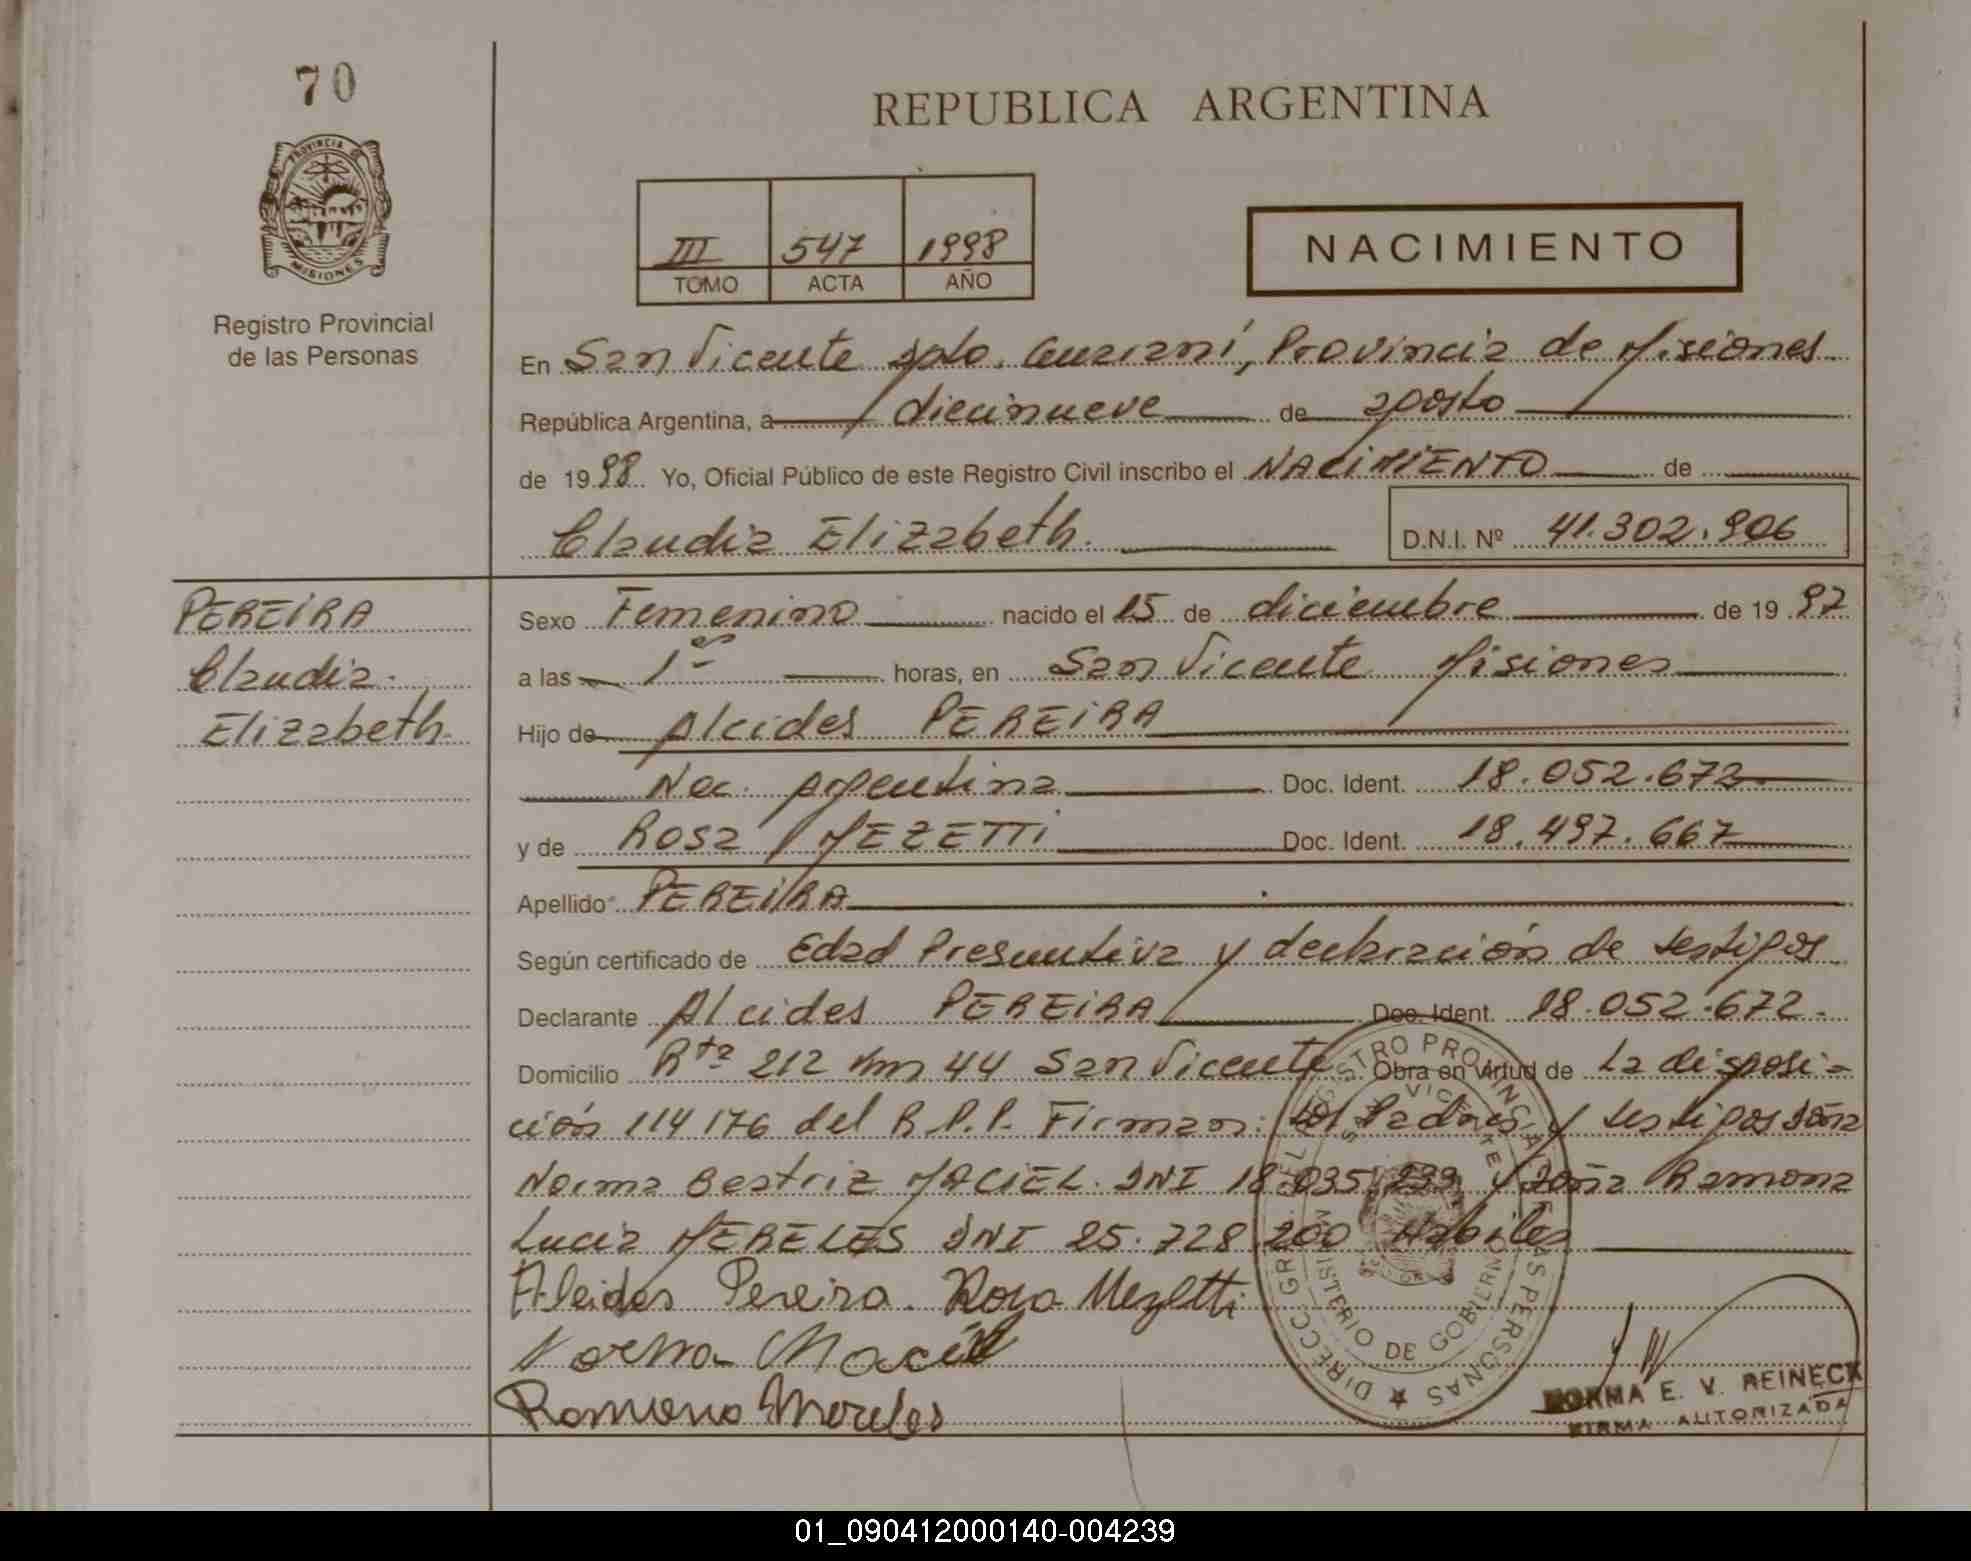 70
REPUBLICA ARGENTINA
PROVINCIA DE
MISIONES
Registro Provincial
de las Personas
III 547 1998
TOMO ACTA AÑO
NACIMIENTO
En San Vicente dpto. Guaraní, Provincia de Misiones
República Argentina, a diecinueve de agosto
de 1998 Yo, Oficial Público de este Registro Civil inscribo el NACIMIENTO de
Claudia Elizabeth. D.N.I. Nº 41.302.906
PEREIRA
Claudia
Elizabeth
Sexo Femenino nacido el 15 de diciembre de 1997
a las 1 horas, en San Vicente Misiones
Hijo de Alcides PEREIRA
Nac. Argentina Doc. Ident. 18.052.672
y de Rosa MEZETTI Doc. Ident. 18.497.667
Apellido PEREIRA
Según certificado de Edad Presuntiva y declaración de testigos
Declarante Alcides PEREIRA Doc. Ident. 18.052.672
Domicilio Rta 212 km 44 San Vicente Obra en virtud de La disposi-
ción 114176 del R.P.P. Firman: los Padres y testigos doña
Norma Beatriz MACIEL DNI 18.035.299 y doña Ramona
Lucia MERELES DNI 25.728.200 Habiles
Alcides Pereira. Rosa Mezetti
Norma Maciel
Ramona Mereles
NORMA E. V. REINECK
FIRMA AUTORIZADA
01_090412000140-004239